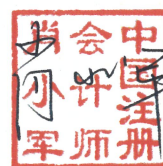 中国注册
会计师
肖小军